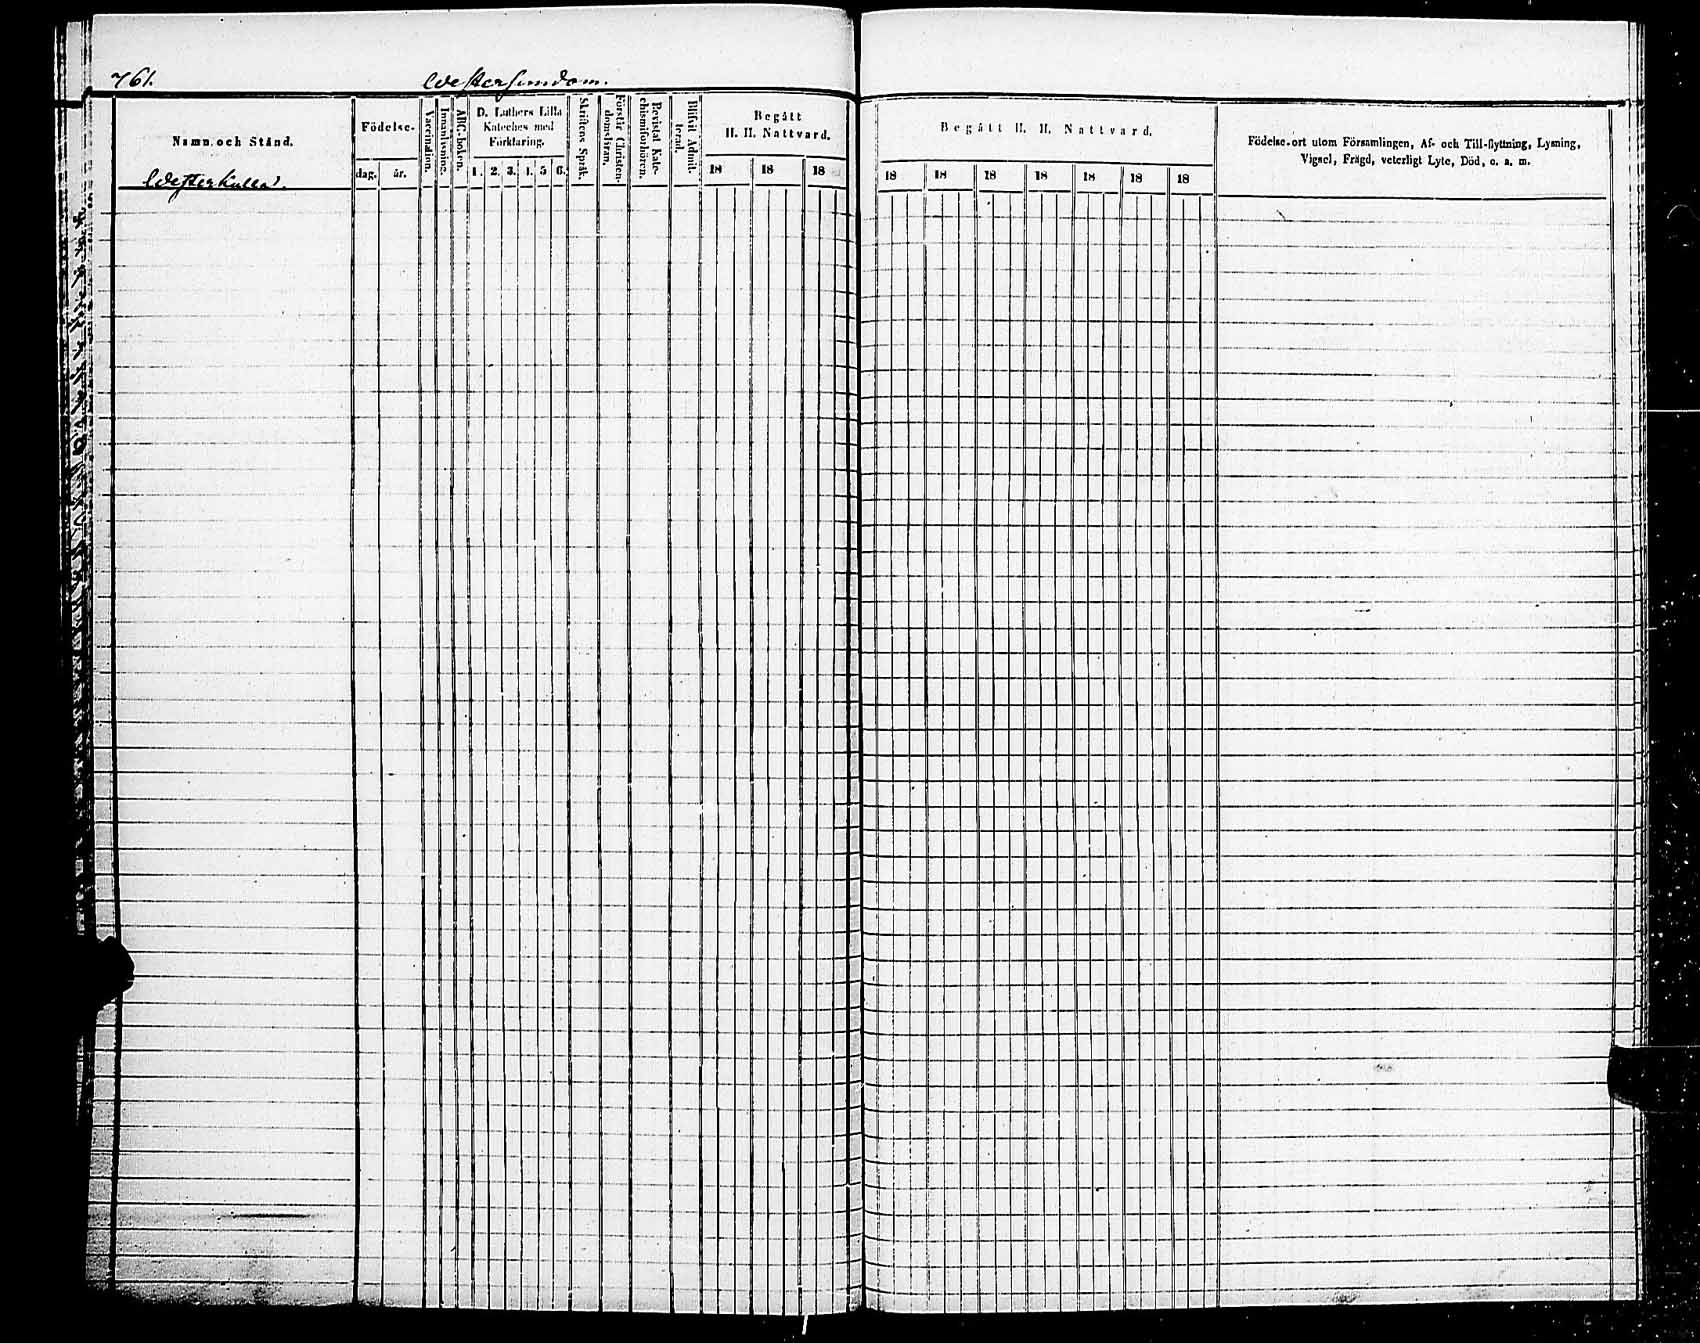 761.
Westersundom.
Namn och Stånd.
Westerkulla
Födelse-
dag.
år.
Vaccination.
Innanläsning.
ABC-boken.
D. Luthers Lilla
Kateches med
Förklaring.
1. 2. 3. 4. 5 6.
Skriftens Språk.
Förstår Christen-
domsläran.
Bevistat Kate-
chismiförhören.
Blifvit Admit-
terad.
Begått
H. H. Nattvard.
18 18 18
Begått H. H. Nattvard.
18 18 18 18 18 18 18
Födelse-ort utom Församlingen, Af- och Till-flyttning, Lysning,
Vigsel, Frägd, veterligt Lyte, Död, o. a. m.